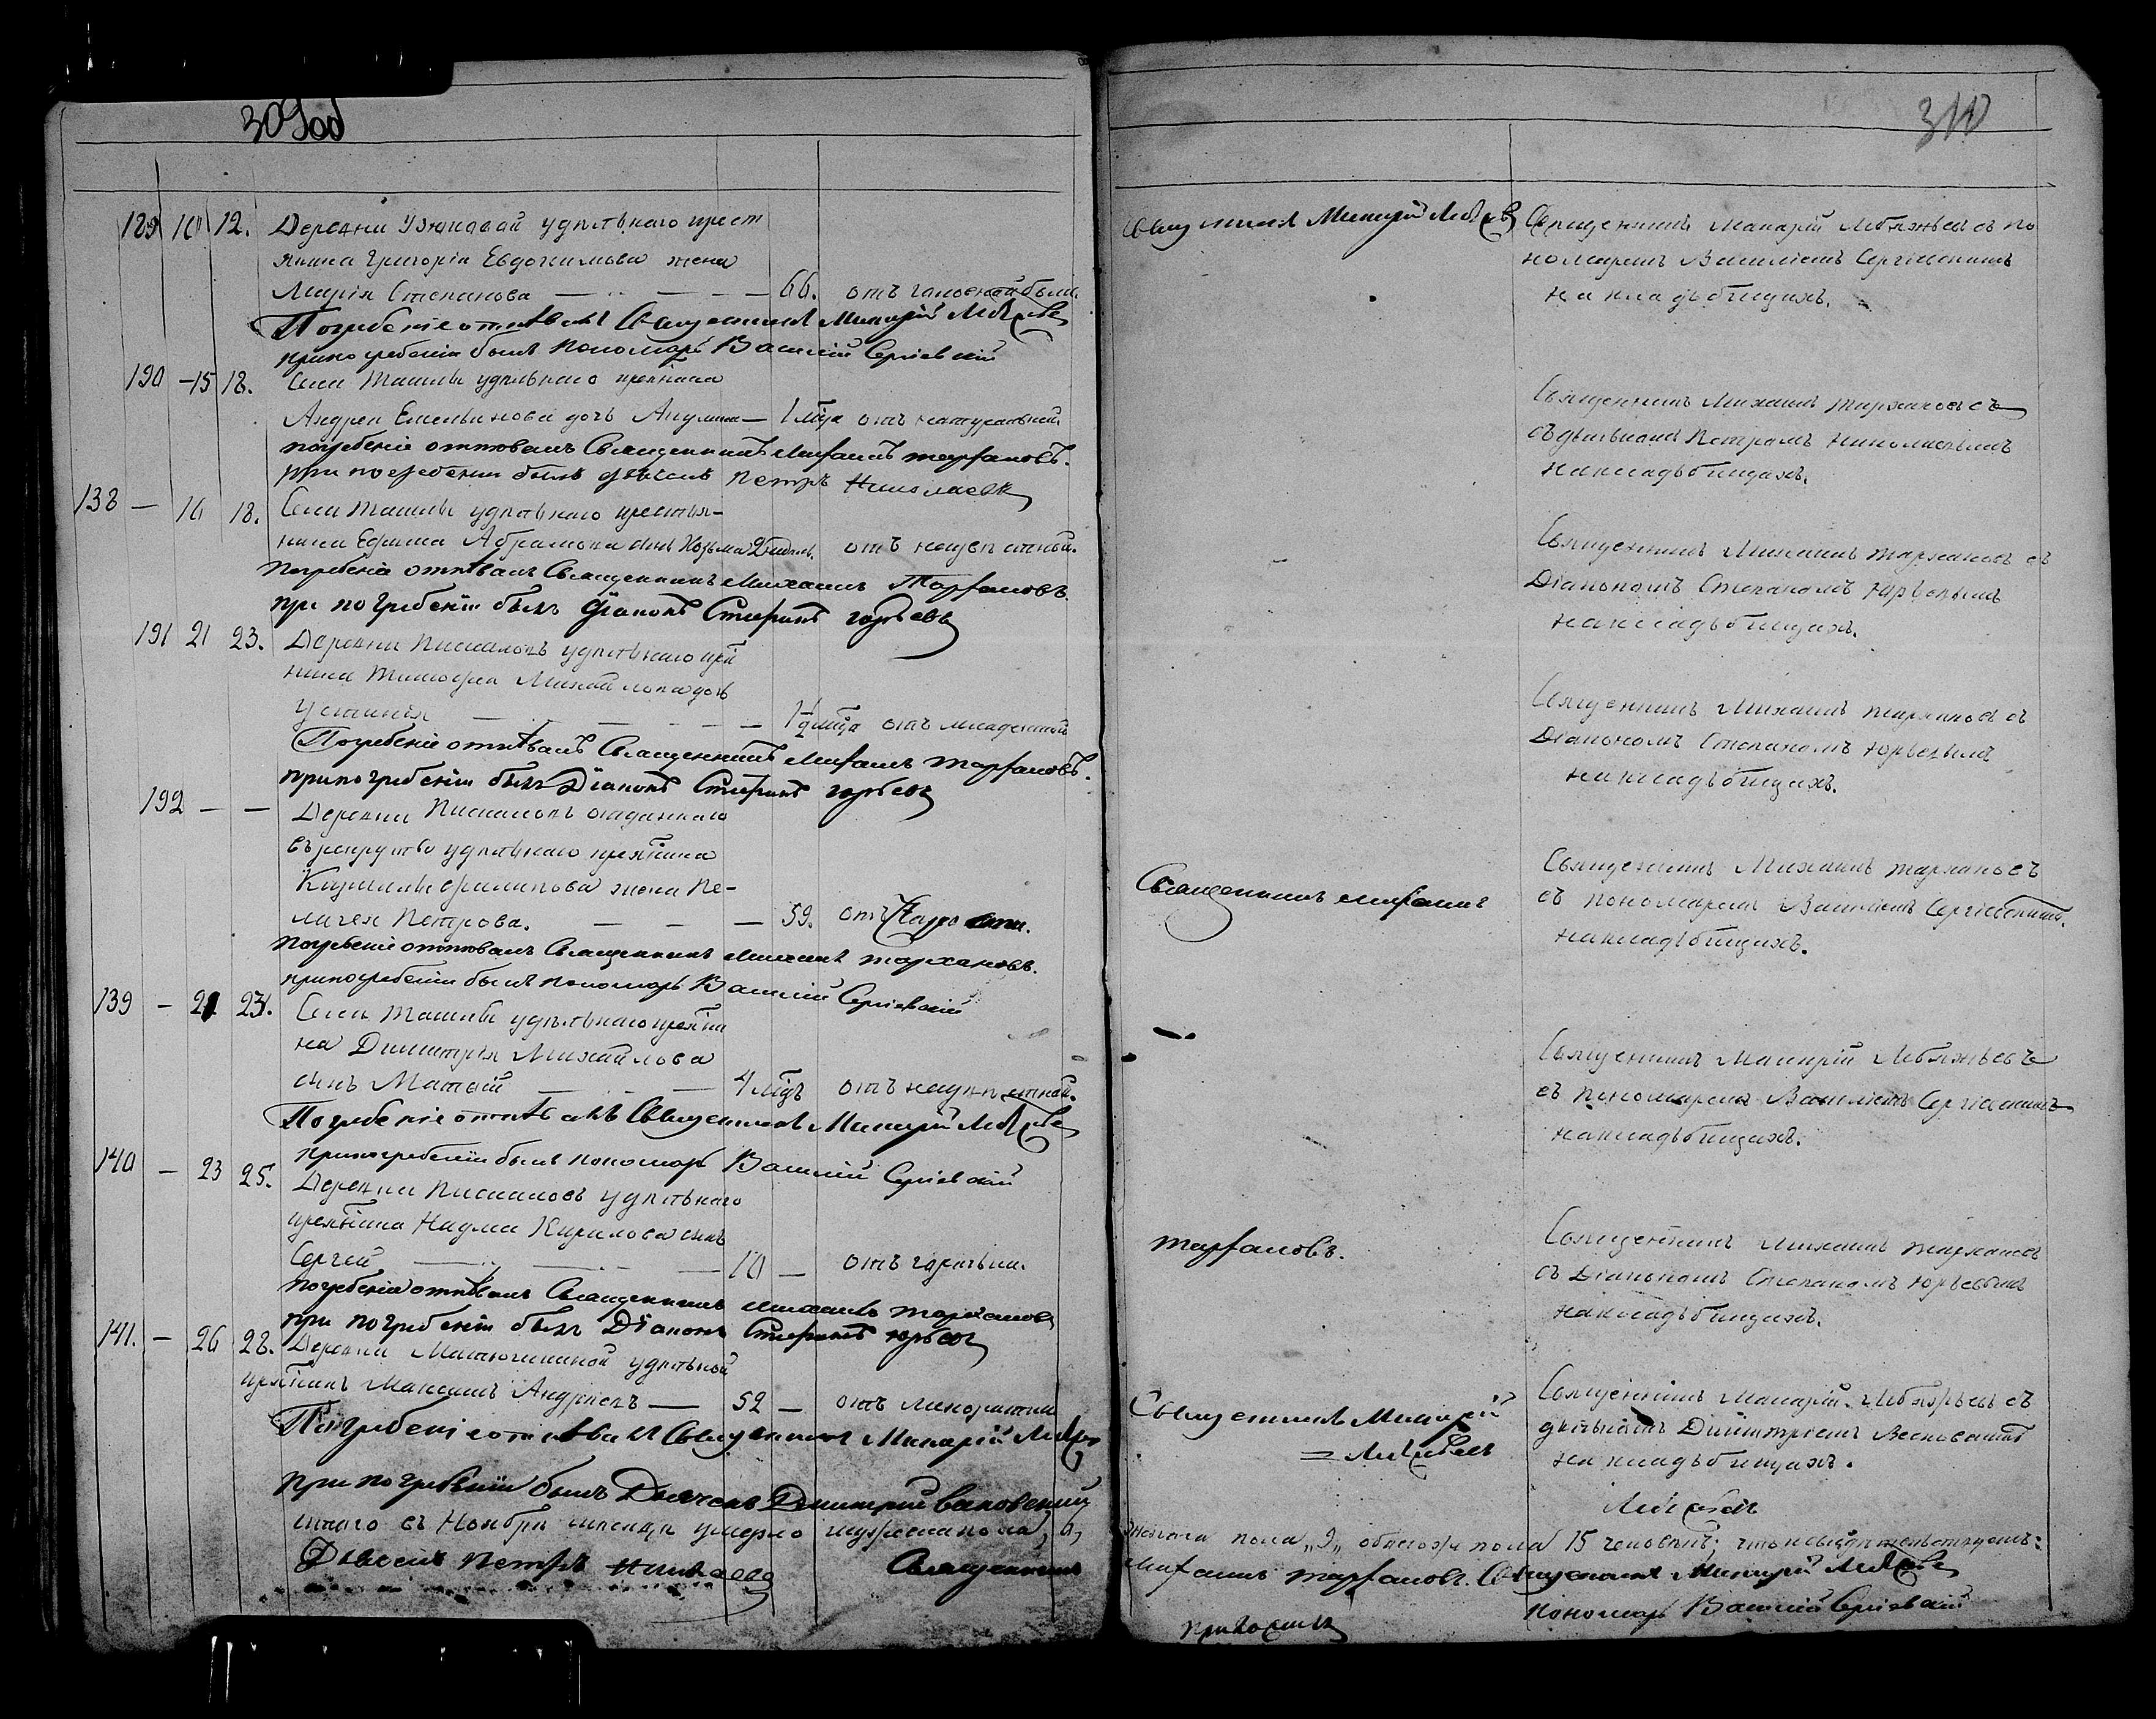 309об
189 10 12. Деревни Узюковой удѣльнаго крест
янина Григорія Евдокимова жена
Марія Степанова — 66. отъ головной боли.
Погребеніе отпѣвалъ Священникъ Макарій Лебяжьев
при погребеніи былъ Пономарь Василій Сергіевскій
190 – 15 18. Села Ташлы удѣльнаго крестьянина
Андрея Емельянова дочь Акулина — 1 мѣца отъ натуральной
погребеніе отпѣвалъ Священникъ Михаилъ Тархановъ.
при погребеніи былъ дьячекъ Петръ Николаевъ
138 — 16 18. Села Ташлы удѣльнаго крестья-
нина Ефима Абрамова сынъ Козьма 2 недѣль. отъ
Погребеніе отпѣвалъ Священникъ Михаилъ Тархановъ.
при погребеніи былъ Діаконъ Стефанъ Юрьевъ
191 21 23. Деревни Пискаловъ удѣльнаго крестья
нина Тимофея Михайлова дочь
Устинія — 1½ мѣца отъ младенской
Погребеніе отпѣвалъ Священникъ Михаилъ Тархановъ.
при погребеніи былъ Діаконъ Стефанъ Юрьевъ
192 — — Деревни Пискаловъ отданнаго
въ рекруты удѣльнаго крестьянина
Кирилы Филипова жена Пе-
лагея Петрова. — 59. отъ
Погребеніе отпѣвалъ Священникъ Михаилъ Тархановъ.
при погребеніи былъ пономарь Василій Сергіевскій
139 — 21 23. Села Ташлы удѣльнаго крестьяни
на Димитрія Михайлова
сынъ Матвѣй — 4 мѣцъ отъ
Погребеніе отпѣвалъ Священникъ Макарій Лебяжьев
при погребеніи былъ пономарь Василій Сергіевскій
140 — 23 25. Деревни Пискаловъ удѣльнаго
крестьянина Наума Кирилова сынъ
Сергей — 10 — отъ горячьки.
Погребеніе отпѣвалъ Священникъ Михаилъ Тархановъ
при погребеніи былъ Діаконъ Стефанъ Юрьевъ
141. — 26 28. Деревни Матюшкиной удѣльной
крестьянинъ Максимъ Андреевъ — 52 — отъ лихорадки
Погребеніе отпѣвалъ Священникъ Макарій Лебяжьев
при погребеніи былъ Дьячекъ Димитрій
итого въ Ноябрѣ мѣсяцѣ умерло мужеска пола, 6,
Дьячекъ Петръ Николаевъ Священникъ
310
Священникъ Макарій Лебяжьев
Священникъ Михаилъ
Тархановъ.
Священникъ Макарій
= Лебяжьевъ
Священникъ Макарій Лебяжьевъ съ по
номаремъ Василіемъ Сергіевскимъ
на кладьбищахъ.
Священникъ Михаилъ Тархановъ съ
съ дьячькомъ Петромъ Николаевымъ
на кладьбищахъ.
Священникъ Михаилъ Тархановъ съ
Діакономъ Степаномъ Юрьевымъ
на кладьбищахъ.
Священникъ Михаилъ Тархановъ съ
Діакономъ Степаномъ Юрьевымъ
на кладьбищахъ.
Священникъ Михаилъ Тархановъ
съ пономаремъ Василіемъ Сергіевскимъ.
на кладьбищахъ.
Священникъ Макарій Лебяжьевъ
съ пономаремъ Василіемъ Сергіевскимъ
на кладьбищахъ.
Священникъ Михаилъ Тархановъ
съ Діакономъ Степаномъ Юрьевымъ
на кладьбищахъ.
Священникъ Макарій Лебяжьевъ съ
дьячькомъ Димитріемъ
на кладьбищахъ.
женска пола „9„ обоего пола 15 человѣкъ; что и свидѣтельствуемъ:
Михаилъ Тархановъ. Священникъ Макарій Лебяжьев
пономарь Василій Сергіевскій